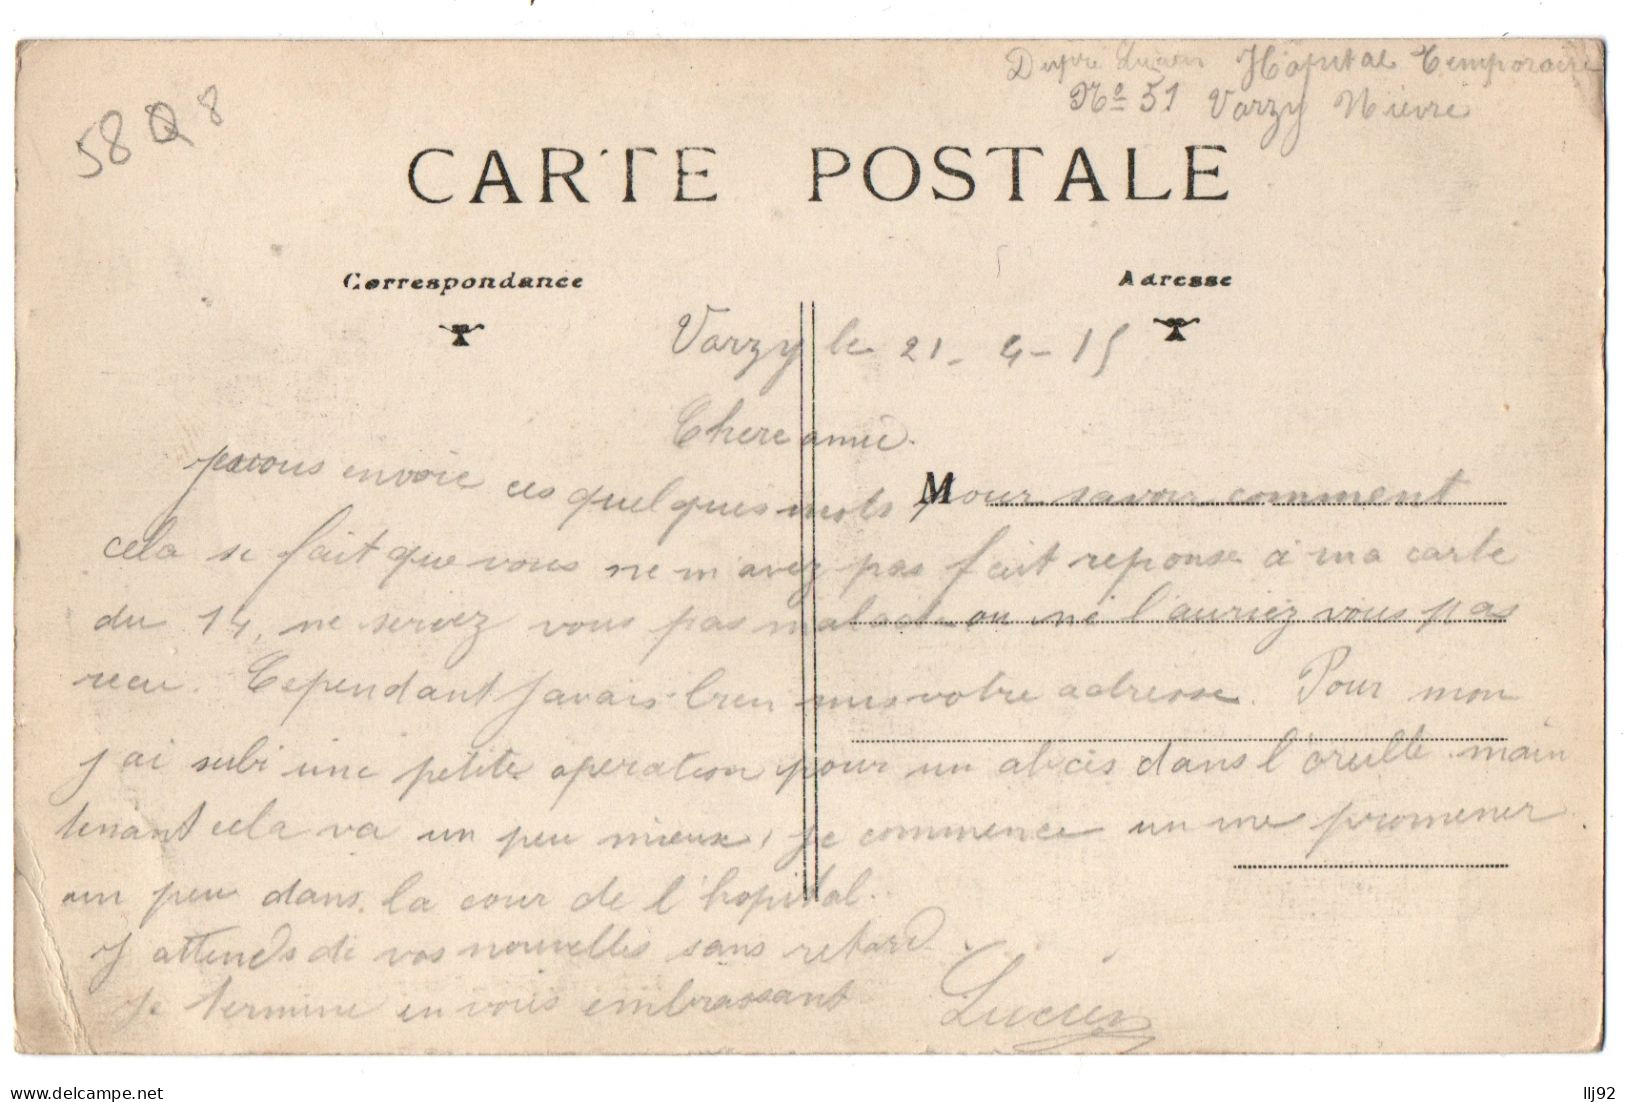 Lucien Hôpital Temporaire
Nº 51 Varzy Nièvre
58 Q 8
CARTE POSTALE
Correspondance
Adresse
Varzy le 21-4-15
Chere amie.
je vous envoie ces quelques mots pour savoir comment
M
cela se fait que vous ne m'avez pas fait reponse à ma carte
du 14, ne seriez vous pas malade ou ne l'auriez vous pas
recu. Cependant j'avais bien mis votre adresse. Pour mon
j'ai subi une petite operation pour un abcès dans l'oreille. main
tenant cela va un peu mieux, je commence un me promener
un peu dans la cour de l'hopital.
J'attends de vos nouvelles sans retard.
Je termine en vous embrassant
Lucien
delcampe.net
llj92